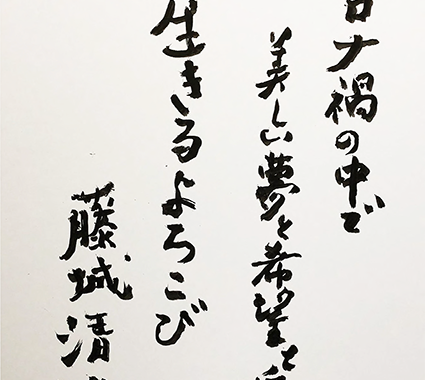 ロナ禍の中で
美しい夢と希望を
生きるよろこび
藤城清